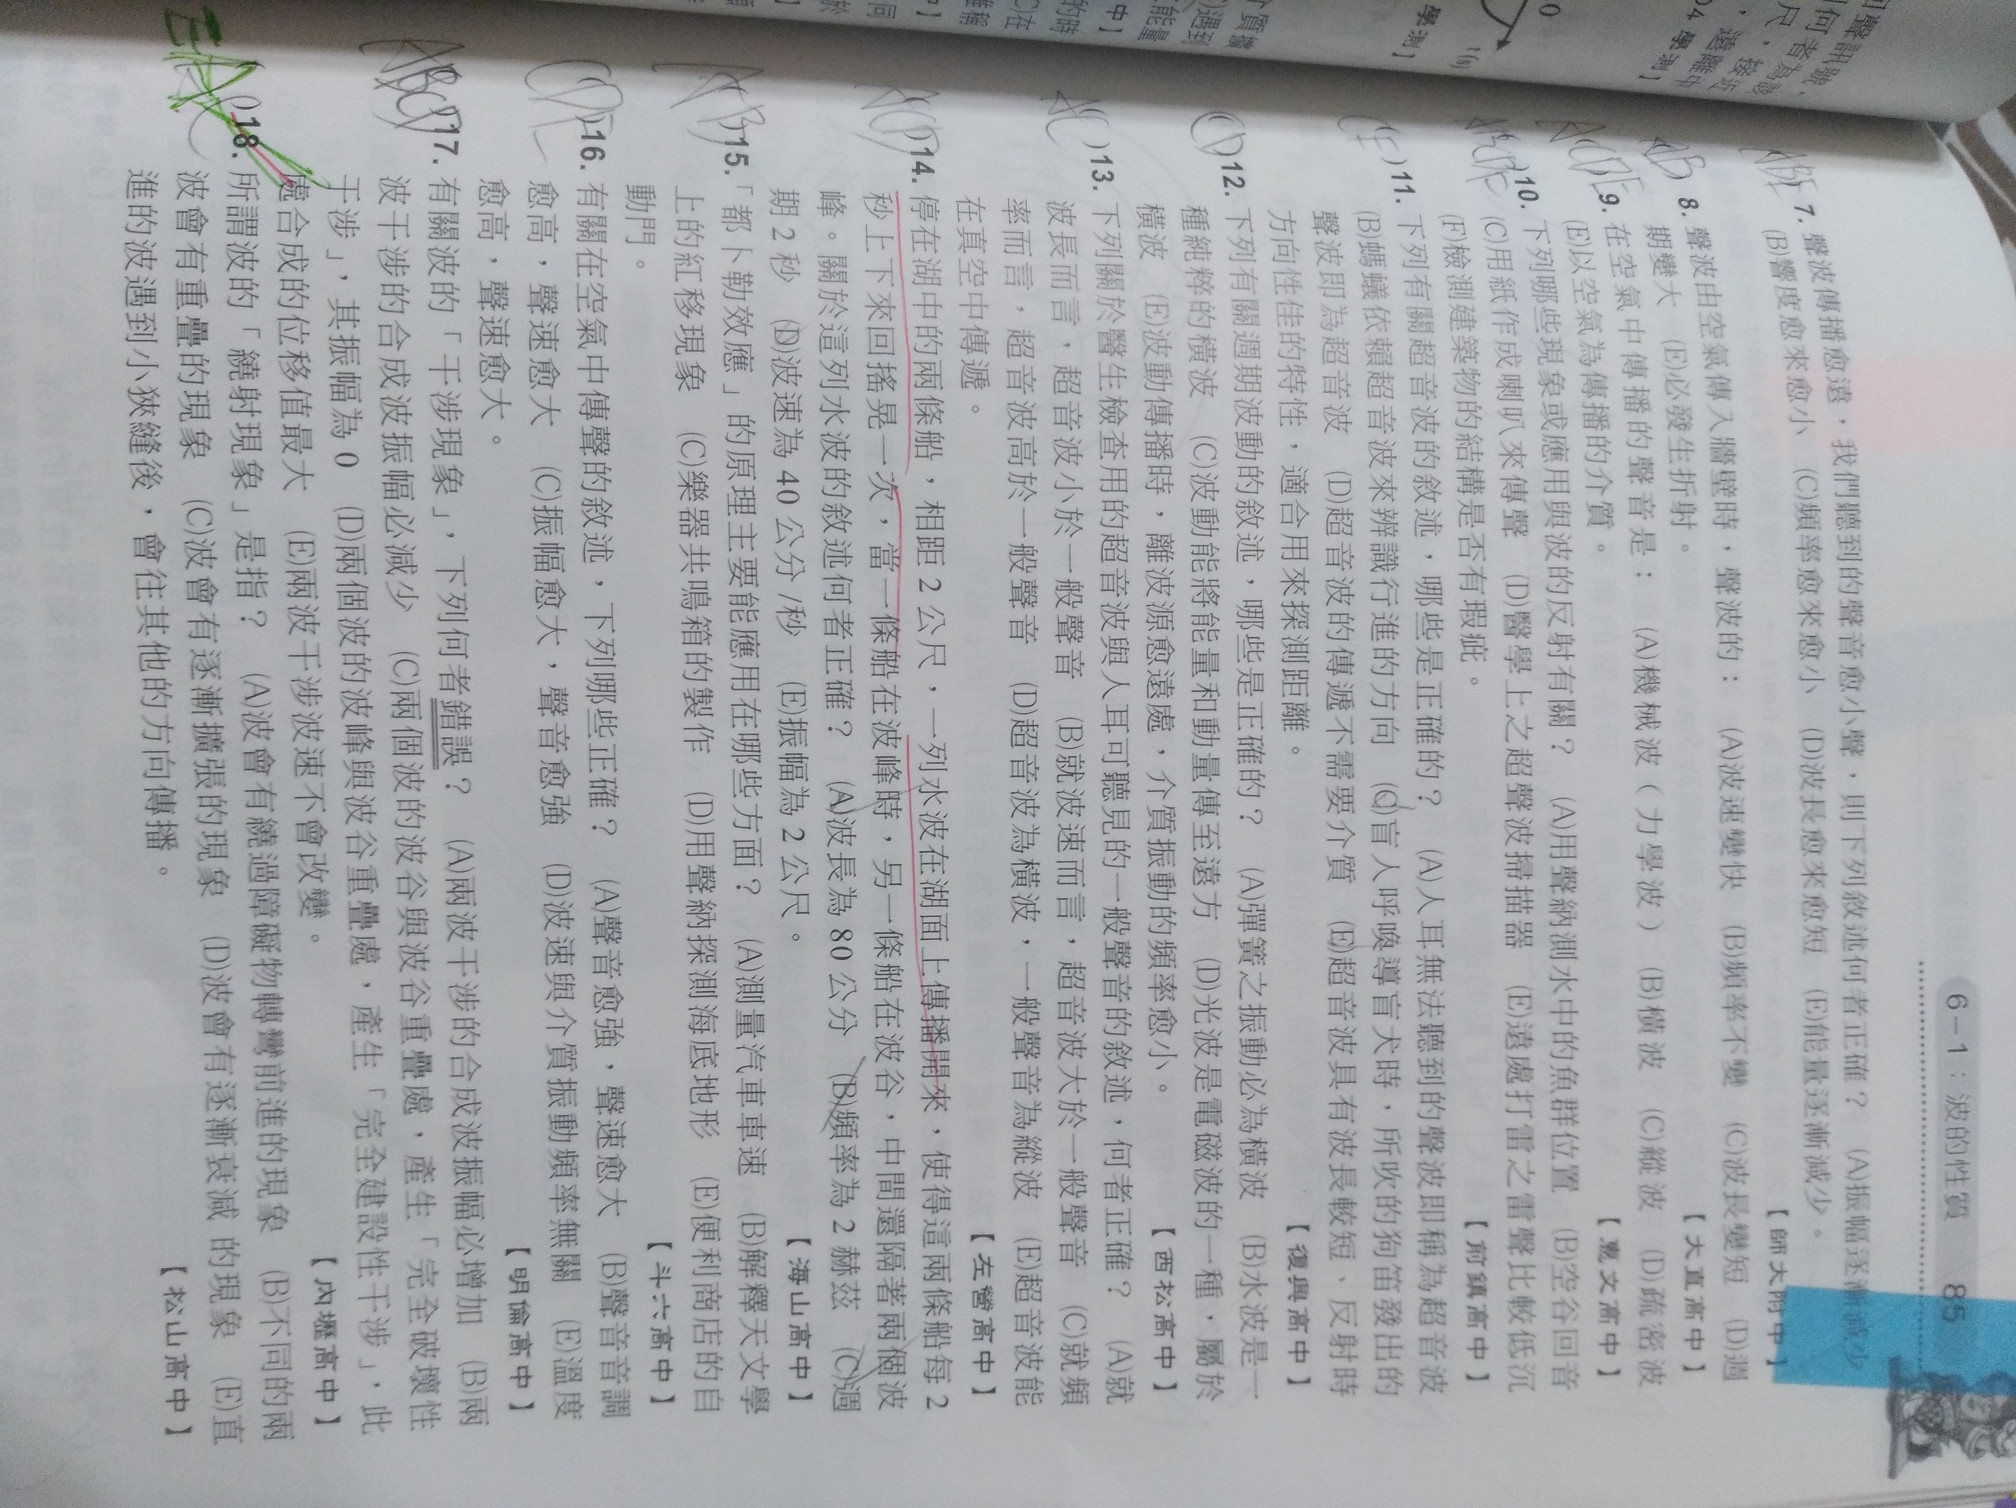 6-1：波的性質 85
7. 聲波傳播愈遠，我們聽到的聲音愈小聲，則下列敘述何者正確？ (A)振幅逐漸減少
(B)響度愈來愈小 (C)頻率愈來愈小 (D)波長愈來愈短 (E)能量逐漸減少。
【師大附中】
8. 聲波由空氣傳入牆壁時，聲波的： (A)波速變快 (B)頻率不變 (C)波長變短 (D)週
期變大 (E)必發生折射。
【大直高中】
9. 在空氣中傳播的聲音是： (A)機械波（力學波） (B)橫波 (C)縱波 (D)疏密波
(E)以空氣為傳播的介質。
【惠文高中】
10. 下列哪些現象或應用與波的反射有關？ (A)用聲納測水中的魚群位置 (B)空谷回音
(C)用紙作成喇叭來傳聲 (D)醫學上之超聲波掃描器 (E)遠處打雷之雷聲比較低沉
(F)檢測建築物的結構是否有瑕疵。
【前鎮高中】
11. 下列有關超音波的敘述，哪些是正確的？ (A)人耳無法聽到的聲波即稱為超音波
(B)螞蟻依賴超音波來辨識行進的方向 (C)盲人呼喚導盲犬時，所吹的狗笛發出的
聲波即為超音波 (D)超音波的傳遞不需要介質 (E)超音波具有波長較短、反射時
方向性佳的特性，適合用來探測距離。
【復興高中】
12. 下列有關週期波動的敘述，哪些是正確的？ (A)彈簧之振動必為橫波 (B)水波是一
種純粹的橫波 (C)波動能將能量和動量傳至遠方 (D)光波是電磁波的一種，屬於
橫波 (E)波動傳播時，離波源愈遠處，介質振動的頻率愈小。
【西松高中】
13. 下列關於醫生檢查用的超音波與人耳可聽見的一般聲音的敘述，何者正確？ (A)就
波長而言，超音波小於一般聲音 (B)就波速而言，超音波大於一般聲音 (C)就頻
率而言，超音波高於一般聲音 (D)超音波為橫波，一般聲音為縱波 (E)超音波能
在真空中傳遞。
【左營高中】
14. 停在湖中的兩條船，相距 2 公尺，一列水波在湖面上傳播開來，使得這兩條船每 2
秒上下來回搖晃一次，當一條船在波峰時，另一條船在波谷，中間還隔著兩個波
峰。關於這列水波的敘述何者正確？ (A)波長為 80 公分 (B)頻率為 2 赫茲 (C)週
期 2 秒 (D)波速為 40 公分/秒 (E)振幅為 2 公尺。
【海山高中】
15.「都卜勒效應」的原理主要能應用在哪些方面？ (A)測量汽車車速 (B)解釋天文學
上的紅移現象 (C)樂器共鳴箱的製作 (D)用聲納探測海底地形 (E)便利商店的自
動門。
【斗六高中】
16. 有關在空氣中傳聲的敘述，下列哪些正確？ (A)聲音愈強，聲速愈大 (B)聲音音調
愈高，聲速愈大 (C)振幅愈大，聲音愈強 (D)波速與介質振動頻率無關 (E)溫度
愈高，聲速愈大。
【明倫高中】
17. 有關波的「干涉現象」，下列何者錯誤？ (A)兩波干涉的合成波振幅必增加 (B)兩
波干涉的合成波振幅必減少 (C)兩個波的波谷與波谷重疊處，產生「完全破壞性
干涉」，其振幅為 0 (D)兩個波的波峰與波谷重疊處，產生「完全建設性干涉」，此
處合成的位移值最大 (E)兩波干涉波速不會改變。
【內壢高中】
18. 所謂波的「繞射現象」是指？ (A)波會有繞過障礙物轉彎前進的現象 (B)不同的兩
波會有重疊的現象 (C)波會有逐漸擴張的現象 (D)波會有逐漸衰減 的現象 (E)直
進的波遇到小狹縫後，會往其他的方向傳播。
【松山高中】